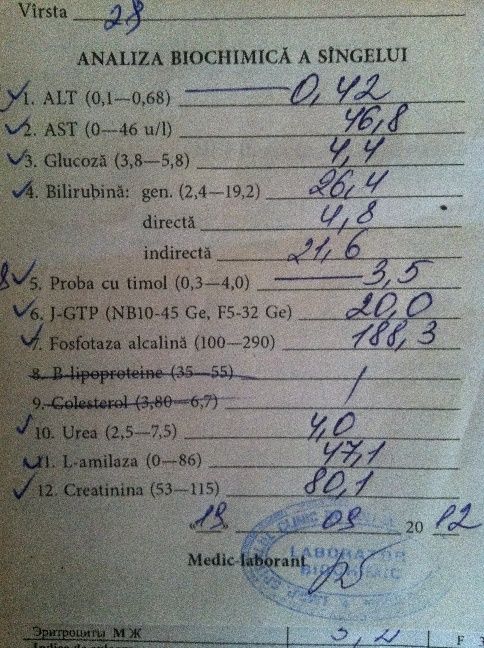 Vîrsta 28
ANALIZA BIOCHIMICĂ A SÎNGELUI
1. ALT (0,1—0,68) 0,42
2. AST (0—46 u/l) 46,8
3. Glucoză (3,8—5,8) 4,4
4. Bilirubină: gen. (2,4—19,2) 26,4
directă 4,8
indirectă 21,6
5. Proba cu timol (0,3—4,0) 3,5
6. J-GTP (NB10-45 Ge, F5-32 Ge) 20,0
7. Fosfotaza alcalină (100—290) 188,3
8. B lipoproteine (35—55)
9. Colesterol (3,80—6,7)
10. Urea (2,5—7,5) 4,0
11. L-amilaza (0—86) 47,1
12. Creatinina (53—115) 80,1
«19» 09 20 12
Medic-laborant
LABORATOR
BIOCHIMIC
Эритроциты М Ж 3,2 F 3